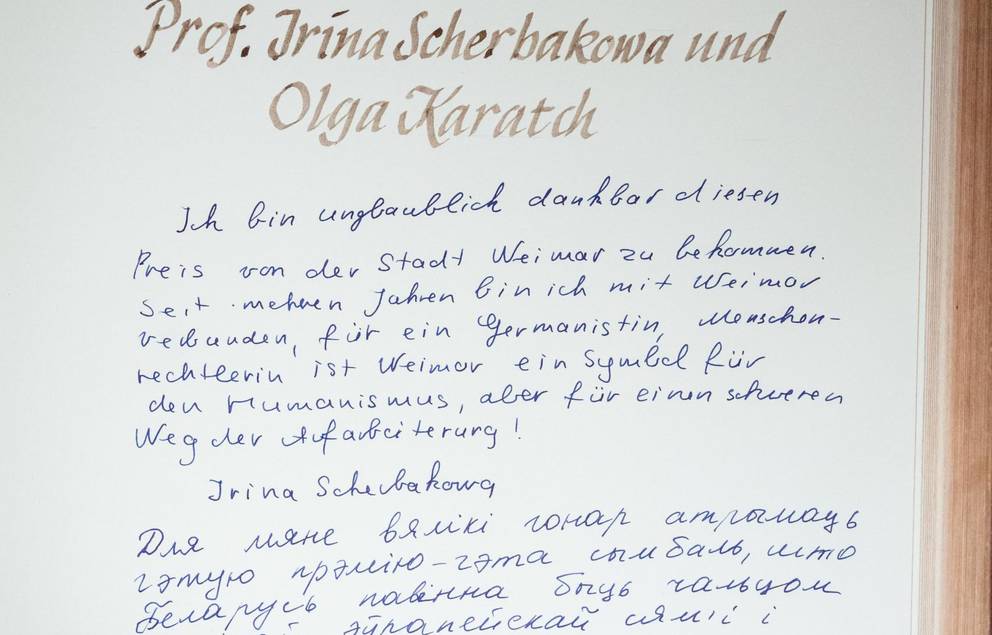 Prof. Irina Scherbakowa und
Olga Karatch
Ich bin unglaublich dankbar diesen
Preis von der Stadt Weimar zu bekommen.
Seit mehren Jahren bin ich mit Weimar
verbunden, für ein Germanistin, Menschen-
rechtlerin ist Weimar ein Symbol für
den Humanismus, aber für einen schweren
Weg der Aufarbeiterung!
Irina Scherbakowa
Для мяне вялікі гонар атрымаць
гэтую прэмію - гэта сымбаль, што
Беларусь павінна быць чальцом
эўрапейскай сям'і і